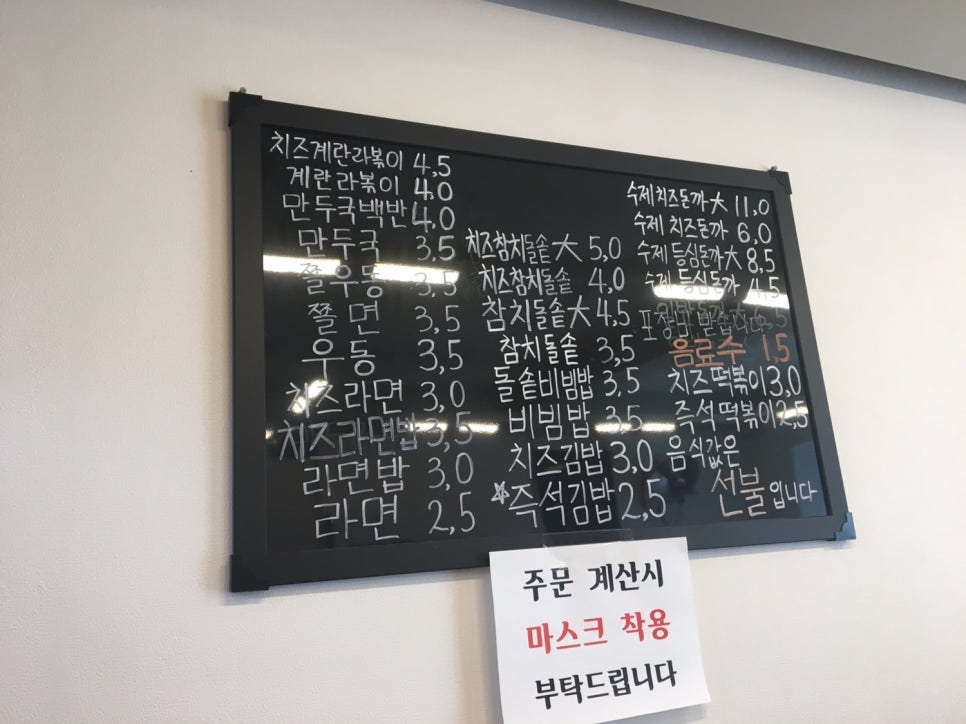 치즈계란라볶이 4,5
계란라볶이 4,0
만두국백반 4,0
만두국 3,5
쫄우동 3,5
쫄면 3,5
우동 3,5
치즈라면 3,0
치즈라면밥 3,5
라면밥 3,0
라면 2,5
치즈참치돌솥大 5,0
치즈참치돌솥 4,0
참치돌솥大 4,5
참치돌솥 3,5
돌솥비빔밥 3,5
비빔밥 3,5
치즈김밥 3,0
☆즉석김밥 2,5
수제치즈돈까大 11,0
수제 치즈돈까 6,0
수제 등심돈까大 8,5
수제 등심돈까 4,5
음료수 1,5
치즈떡볶이 3,0
즉석떡볶이 2,5
음식값은
선불입니다
주문 계산시
마스크 착용
부탁드립니다